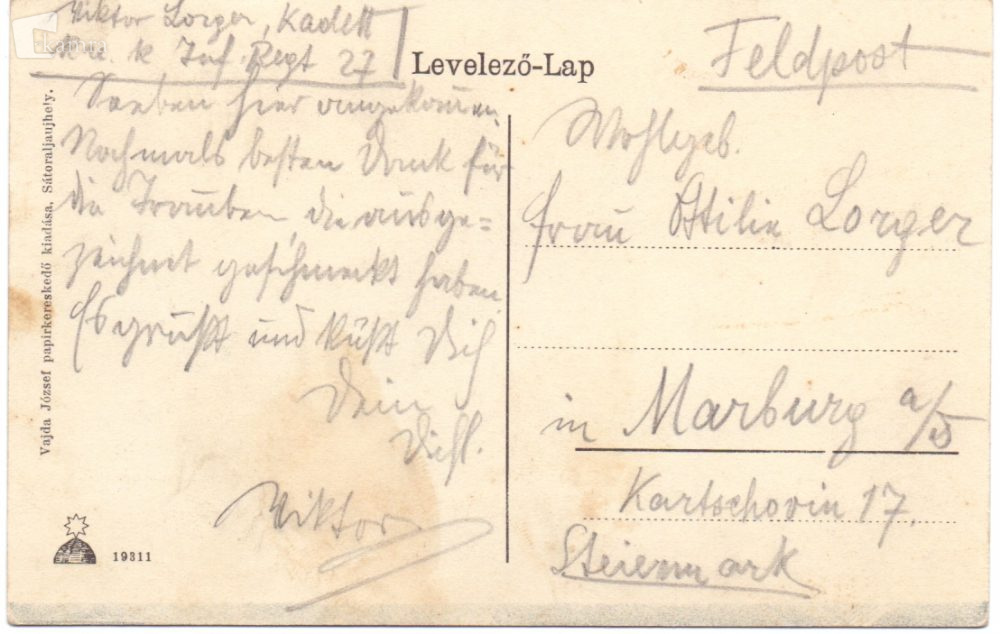 Viktor Lorger, Kadett
k. u. k. Inf. Regt 27
Levelező-Lap
Feldpost
Soeben hier angekommen.
Nochmals besten Dank für
die Trauben, die ausge=
zeichnet geschmeckt haben.
Es grüßt und küßt Dich
Dein
Viktor
Wohlgeb.
Frau Ottilie Lorger
in Marburg a/D
Kartschovin 17.
Steiermark
Vajda József papirkereskedő kiadása, Sátoraljaujhely.
19311